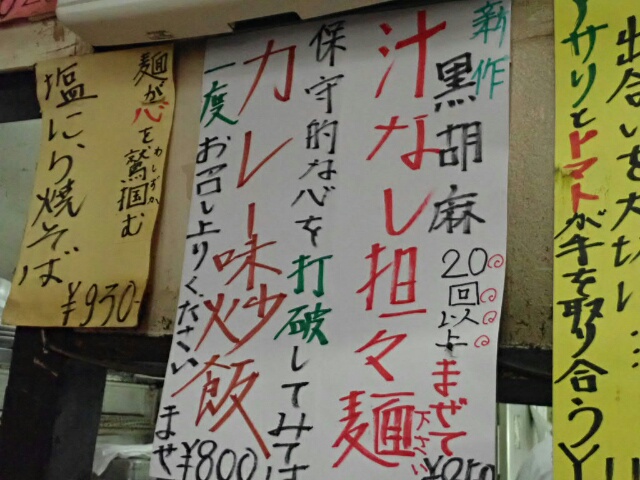 新作
黒胡麻
汁なし担々麺
20回以上まぜて下さい
保守的な心を打破してみては
カレー味炒飯
¥800
一度お召し上りください
ませ
麺が心を鷲掴む
わしずか
塩にら焼そば
¥930-
出合いを大切に…
アサリとトマトが手を取り合う